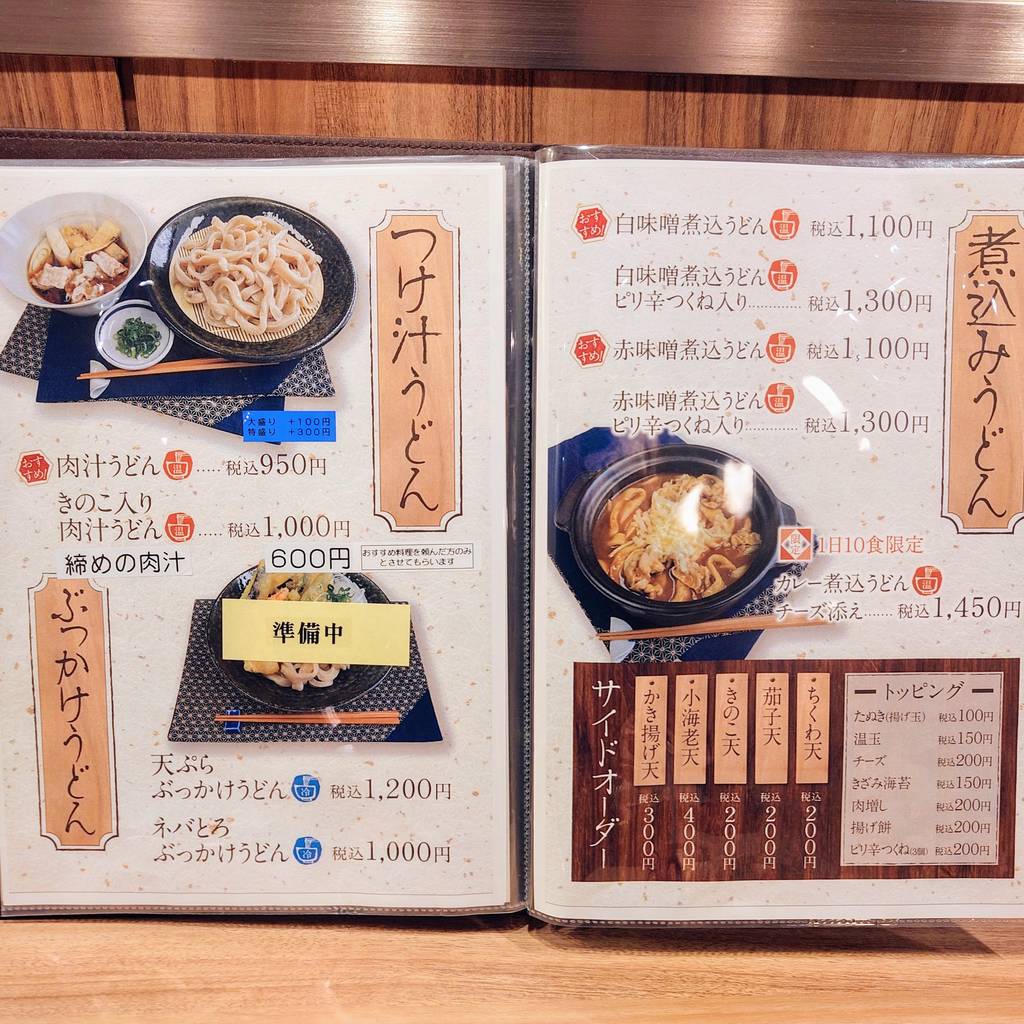 つけ汁うどん
大盛り +100円
特盛り +300円
おすすめ! 肉汁うどん 温 ..... 税込950円
きのこ入り
肉汁うどん 温 ... 税込1,000円
締めの肉汁 600円
おすすめ料理を頼んだ方のみ
とさせてもらいます
ぶっかけうどん
準備中
天ぷら
ぶっかけうどん 冷 税込1,200円
ネバとろ
ぶっかけうどん 冷 税込1,000円
煮込みうどん
おすすめ! 白味噌煮込うどん 温 税込1,100円
白味噌煮込うどん 温
ピリ辛つくね入り........... 税込1,300円
おすすめ! 赤味噌煮込うどん 温 税込1,100円
赤味噌煮込うどん 温
ピリ辛つくね入り........... 税込1,300円
限定 1日10食限定
カレー煮込うどん 温
チーズ添え....... 税込1,450円
サイドオーダー
かき揚げ天 税込300円
小海老天 税込400円
きのこ天 税込200円
茄子天 税込200円
ちくわ天 税込200円
トッピング
たぬき(揚げ玉) 税込100円
温玉 税込150円
チーズ 税込200円
きざみ海苔 税込150円
肉増し 税込200円
揚げ餅 税込200円
ピリ辛つくね(3個) 税込200円